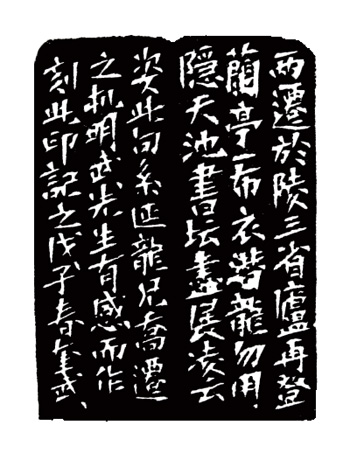 两遷於陵三省廬再登
蘭亭一布衣潜龍勿用
隱天池書坛畫展凌云
姿此句系龍兄喬遷
之机明武先生有感而作
刻此印記之戊子春武